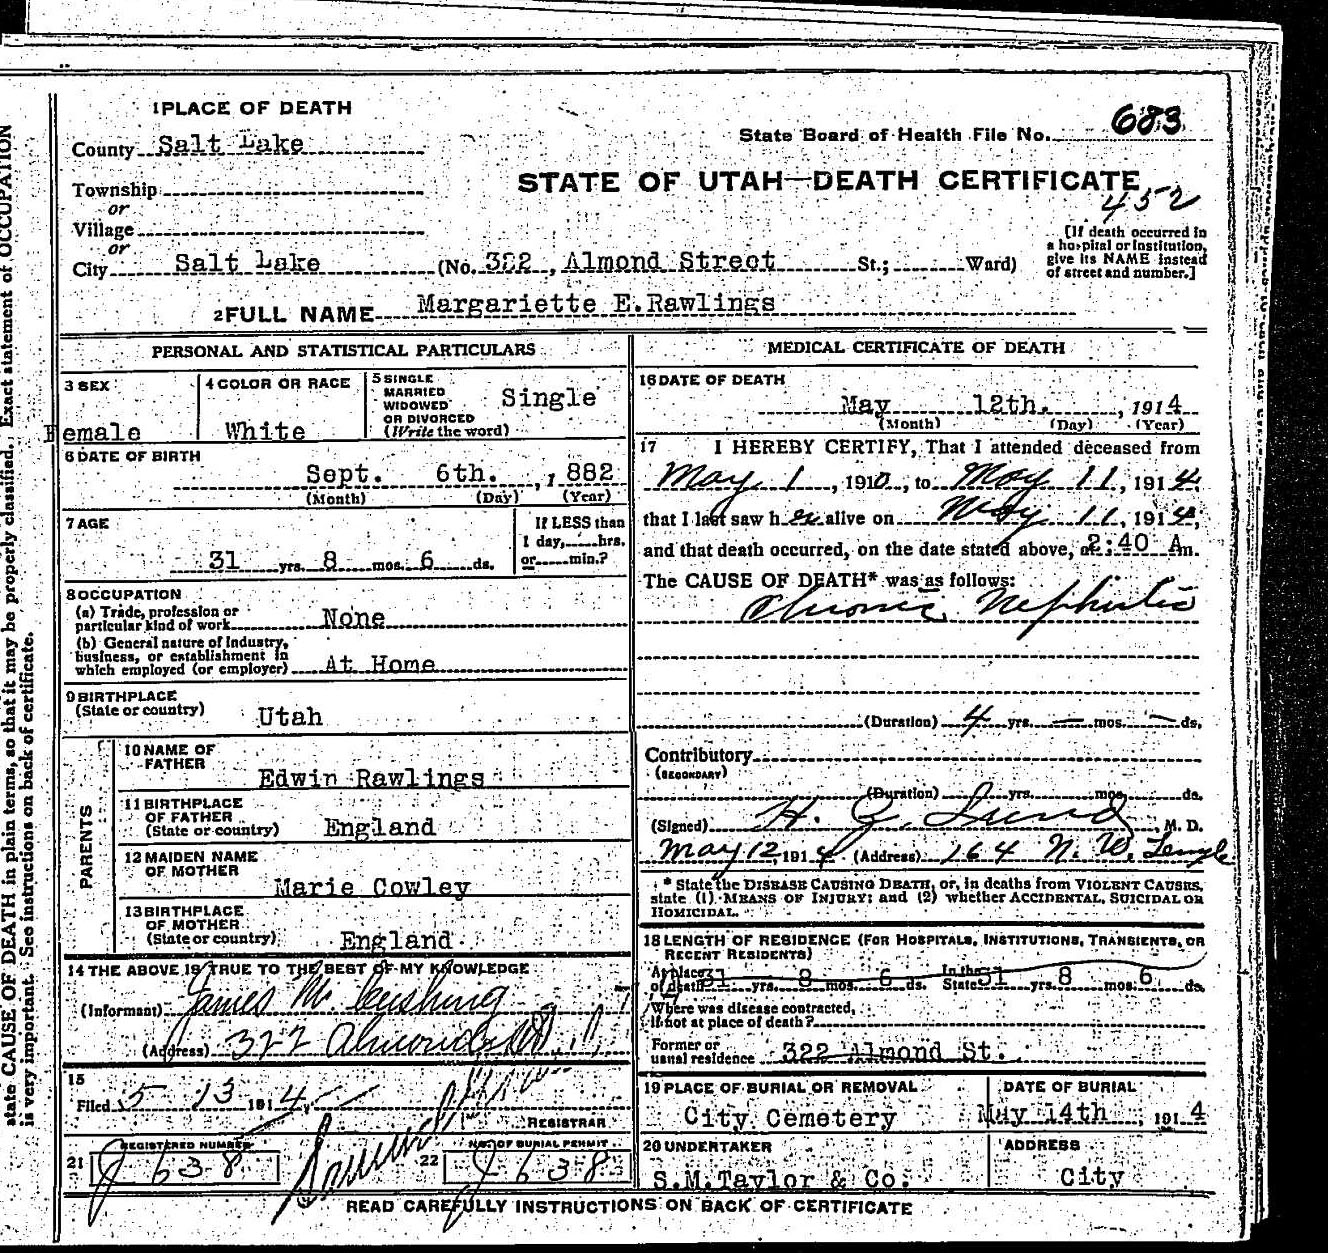 state CAUSE OF DEATH in plain terms, so that it may be properly classified. Exact statement of OCCUPATION
is very important. See instructions on back of certificate.
1 PLACE OF DEATH
County Salt Lake
Township
or
Village
or
City Salt Lake (No. 322, Almond Street St.; Ward)
State Board of Health File No. 683
STATE OF UTAH—DEATH CERTIFICATE
452
[If death occurred in
a hospital or institution,
give its NAME instead
of street and number.]
2 FULL NAME Margariette E.Rawlings
PERSONAL AND STATISTICAL PARTICULARS
3 SEX
Female
4 COLOR OR RACE
White
5 SINGLE
MARRIED
WIDOWED
OR DIVORCED
(Write the word)
Single
6 DATE OF BIRTH
Sept. 6th. , 1882
(Month) (Day) (Year)
7 AGE
31 yrs. 8 mos. 6 ds.
If LESS than
1 day, hrs.
or min.?
8 OCCUPATION
(a) Trade, profession or
particular kind of work None
(b) General nature of industry,
business, or establishment in
which employed (or employer) At Home
9 BIRTHPLACE
(State or country) Utah
PARENTS
10 NAME OF
FATHER
Edwin Rawlings
11 BIRTHPLACE
OF FATHER
(State or country) England
12 MAIDEN NAME
OF MOTHER
Marie Cowley
13 BIRTHPLACE
OF MOTHER
(State or country) England
14 THE ABOVE IS TRUE TO THE BEST OF MY KNOWLEDGE
(Informant) James M. Cushing
(Address) 322 Almond
15
Filed 5 13 1914
REGISTRAR
REGISTERED NUMBER
21 J 638
NO. OF BURIAL PERMIT
22 J 638
MEDICAL CERTIFICATE OF DEATH
16 DATE OF DEATH
May 12th. , 1914
(Month) (Day) (Year)
17 I HEREBY CERTIFY, That I attended deceased from
May 1, 1910, to May 11, 1914,
that I last saw her alive on May 11, 1914,
and that death occurred, on the date stated above, at 2:40 A m.
The CAUSE OF DEATH* was as follows:
Chronic Nephritis
(Duration) 4 yrs. — mos. — ds.
Contributory
(SECONDARY)
(Duration) yrs. mos. ds.
(Signed) H. G. Lund, M. D.
May 12, 1914. (Address) 164 N. W. Temple
* State the DISEASE CAUSING DEATH, or, in deaths from VIOLENT CAUSES,
state (1) MEANS OF INJURY; and (2) whether ACCIDENTAL, SUICIDAL OR
HOMICIDAL.
18 LENGTH OF RESIDENCE (FOR HOSPITALS, INSTITUTIONS, TRANSIENTS, OR
RECENT RESIDENTS)
At place
of death 31 yrs. 8 mos. 6 ds. In the
State 31 yrs. 8 mos. 6 ds.
Where was disease contracted,
if not at place of death?
Former or
usual residence 322 Almond St.
19 PLACE OF BURIAL OR REMOVAL
City Cemetery
DATE OF BURIAL
May 14th, 1914
20 UNDERTAKER
S.M.Taylor & Co.
ADDRESS
City
READ CAREFULLY INSTRUCTIONS ON BACK OF CERTIFICATE